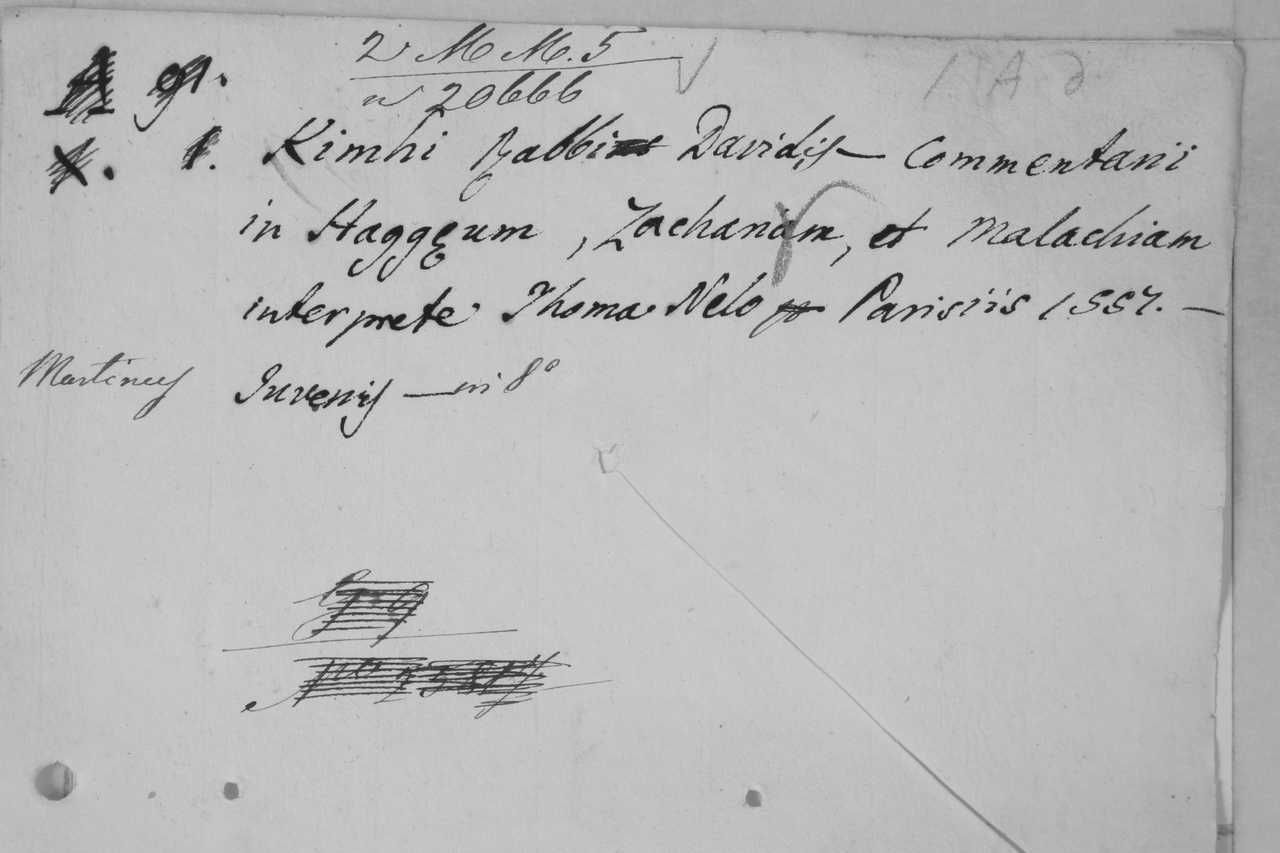 2 M M.5
n 20666
1 A d
Kimhi Rabbi Davidis — Commentarii
in Haggęum, Zachariam, et Malachiam
interprete Thoma Nelo Parisiis 1557. —
Juvenis — in 8°